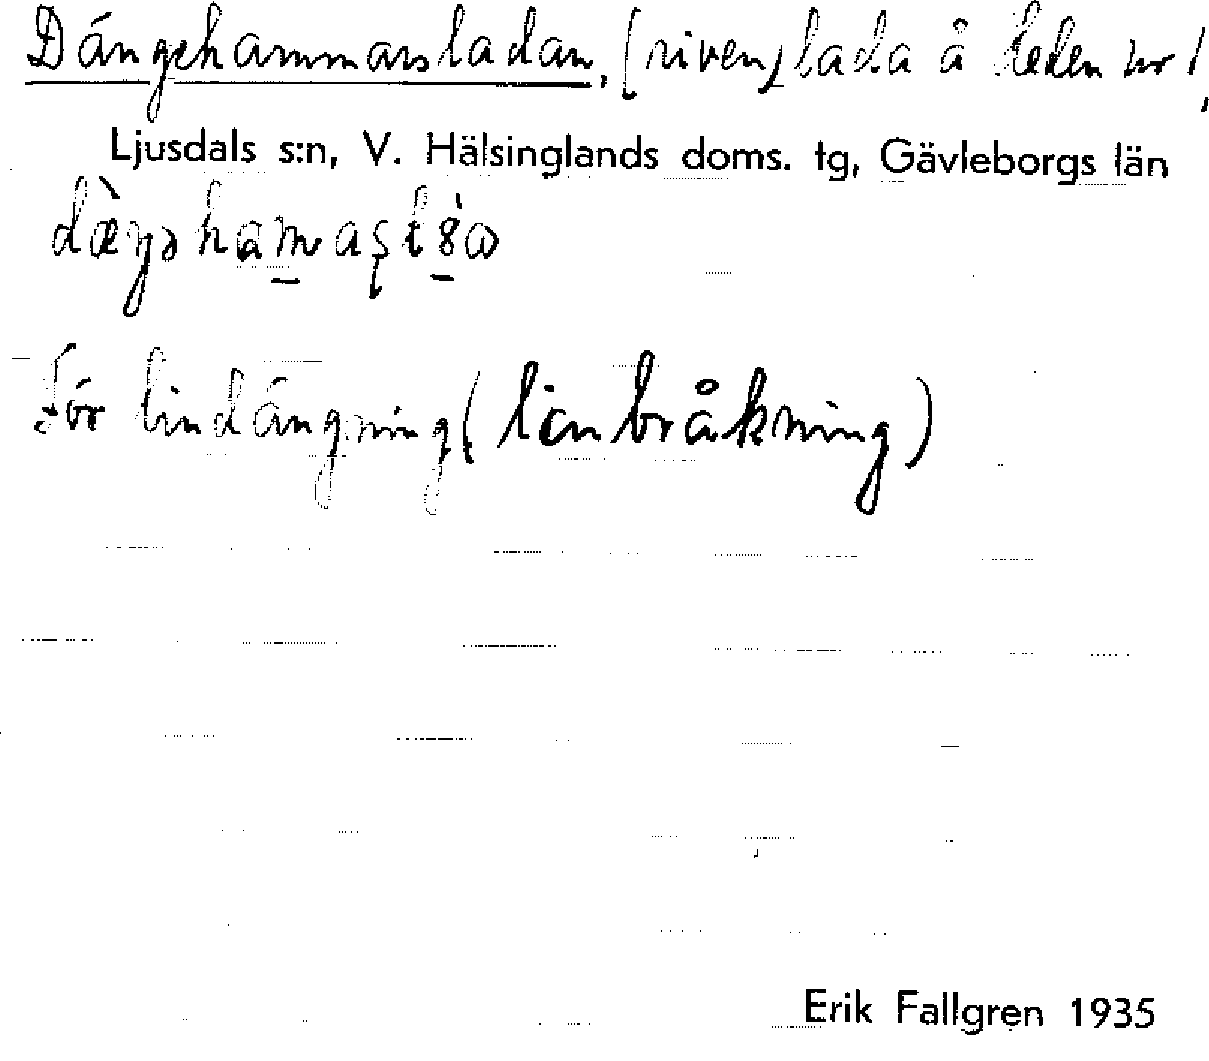 Dängehammarsladan, (riven) lada å Heden nr 1,
Ljusdals s:n, V. Hälsinglands doms. tg, Gävleborgs län
För lindängning (linbråkning)
Erik Fallgren 1935